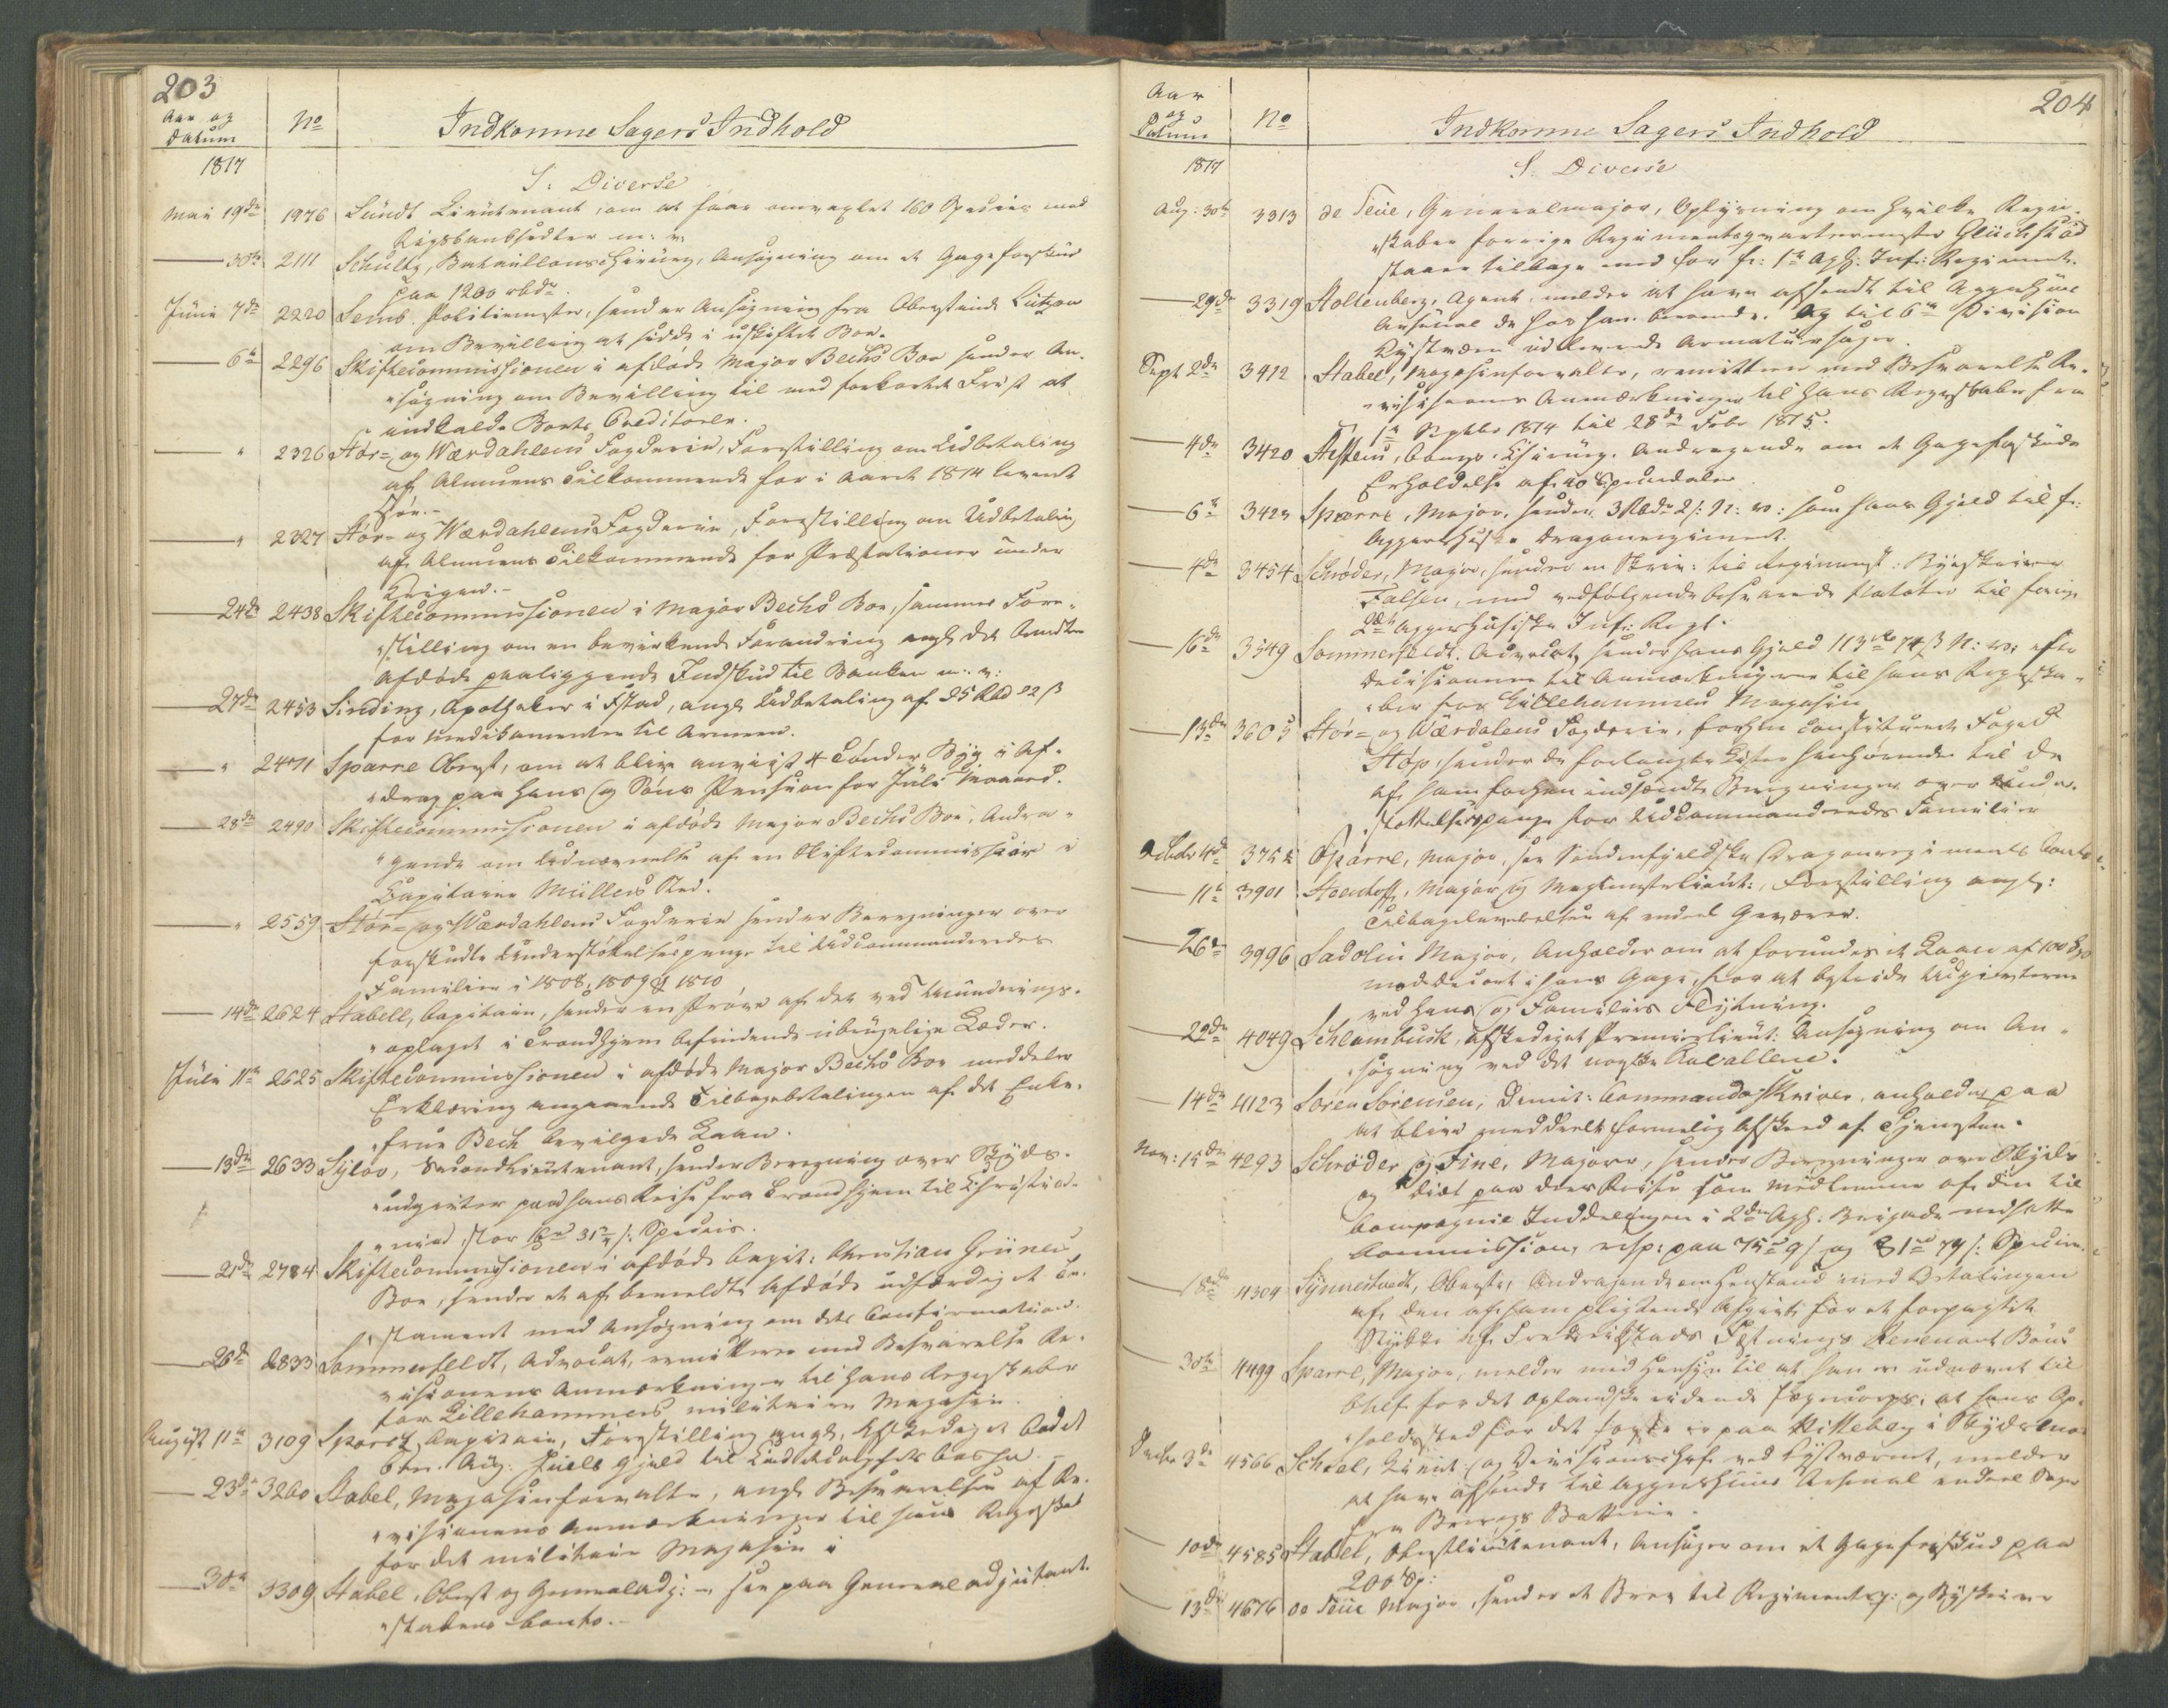 203
Aar og
Datum
No
Indkomne Sagers Indhold
1817
S: Diverse
Mai 19de 1976 Lundt Lieutenant, om at faae omvexlet 160 Species med
Rigsbanksedler m: v:
30te 2111 Schultz, Bataillonschirurg, Ansøgning om et Gageforskud
paa 1200 rbdr.
Juni 7de 2220 Semb. Politiemester, sender Ansøgning fra Oberstinde Lützow
om Bevilling at sidde i uskiftet Boe.
6te 2296 Skiftecommissionen i afdøde Major Bechs Boe sender An-
søgning om Bevilling til med forkortet Frist at
indkalde Boets Creditorer.
" 2326 Stør- og Værdahlens Fogderie, Forestilling om Udbetaling
af Almuens Tilkommende for i Aaret 1814 leveret
Høe.-
" 2327 Stør- og Værdahlens Fogderie, Forestilling om Udbetaling
af Almuens Tilkommende for Præstationer under
Krigen.-
24de 2438 Skiftecommissionen i Major Bechs Boe, sammes Fore-
stilling om en bevirkende Forandring angl. det
afdøde paaliggende Indskud til Banken m: v:
27de 2453 Sinding, Apotheker i Ystad, angl. Udbetaling af 25 Rbd 22 ß
for Medikamenter til Armeen.
" 2471 Sparre Oberst, om at blive anviist 4 Tønder Byg i Af-
drag paa hans og Søns Pension for Juli
28de 2490 Skiftecommissionen i afdøde Major Bechs Boe, Andra-
gende om Udnævnelse af en Skiftecommissair i
Capitaine Müllers Sted.
" 2559 Stør- og Værdahlens Fogderie sender Beregninger over
forskudte Understøttelsespenge til Udcommanderedes
Familier i 1808, 1809 & 1810
14de 2624 Stabell, Capitain, sender en Prøve af det ved Munderings-
oplaget i Trondhjem befindende ubrugelige Læder.
Juli 11te 2625 Skiftecommissionen i afdøde Major Bechs Boe meddeler
Erklæring angaaende Tilbagebetalingen af det Enke-
frue Bech bevilgede Laan.
13de 2633 Sylov, Secondlieutenant, sender Beregning over Skyds-
udgivter paa hans Reise fra Trondhjem til Christia-
nia, stor Species.
21de 2784 Skiftecommissionen i afdøde Capit: Christian Grüners
Boe, sender et af bemeldte Afdøde udfærdiget Te-
stament med Ansøgning om dets Confirmation.
26de 2833 Sommerfeldt, Advocat, remitterer med Besvarelse Re-
visionens Anmærkninger til hans Regnskaber
for Lillehammers militaire Magasin.
August 11te 3109 Capitain, Forestilling angl. Afskediget Cadet
Chr. Aug. Juels Gjeld til Cassa.-
23de 3260 Stabel, Magasinforvalter, angl. Besvarelsen af Re-
visionens Anmærkninger til hans Regnskab
for det militaire Magasin i
30te 3309 Stabel, Oberst og Generaladj: -, see paa Generaladjutant-
stabens Conto.-
204
Aar
og
Datum
No
Indkomne Sagers Indhold
1817
S. Diverse
Aug: 30te 3313 de Seue, Generalmajor, Oplysning om hvilke Regn-
skaber forrige Regimentsqvarteermester Glückstad
staaer tilbage med for fr: 1te Agh: Inf: Regiment.
29de 3319 Stoltenberg, Agent, melder at have afsendt til Aggershuus
Arsenal de hos ham beroende. Og til 6te Division
Kystværn udleverede Armatursager.
Sept 2de 3412 Stabel, Magasinforvalter, remitterer med Besvarelse Re-
visionens Anmærkninger til hans Regnskaber fra
1te Septbr 1814 til 28de Febr 1815.
4de 3420 Steffens, Comps. Chirurg. Andragende om et Gageforskuds
Erholdelse af 40 Speciedaler
6te 3423 Sparre, Major, sender 3 Rbdr 21: N: V: som hans Gjeld til fr:
Aggershusiske Dragonregiment.
4de 3454 Schrøder, Major, sender en Skriv: til Regimentsq: Byeskriver
Falsen, med vedfølgende besvarede Notater til forrige
2det Aggershusiske Inf: Regt.
16de 3549 Sommerfeldt. Advocat, sender hans Gjeld 113 rb 74 ß N: V: efter
Decisionen til Anmærkningerne til hans Regnska-
ber for Lillehammers Magasin
13de 3605 Stør- og Værdalens Fogderie, forhen constitueret Foged
Støp, sender de forlangte Lister henhørende til de
af ham forhen indsendte Beregninger over Under-
støttelsespenge for Udcommanderedes Familier
Octobr 4de Sparre, Major, see Søndenfjeldske Dragonregiments Conto
11te 3901 Steenhoff, Major og Forestilling angl:
Tilbageleverelsen af endeel Geværer.
26de 3996 Sadolin Major, Anholder om at forundes et Laan af 100 Spd
mod Decort i hans Gage, for at bestride Udgivterne
ved hans og Families Flytning.
29de 4049 Schlambusk, afskediget Premierlieut: Ansøgning om An-
søgning ved det norske Cavallerie.
14de 4123 Søren Sørensen, Dimit: Commandoskriver, anholder paa
at blive meddeelt formelig Afskeed af Tjenesten.
Nov: 15de 4293 Schrøder og Fine, Majorer, sender Beregninger over Skyds
og Diæt paa deres Reise som Medlemmer af den til
Compagnie Inddelingen i 2den Agh: Brigade nedsatte
Commission, resp: paa 75 9/ og 81 79/: Specier.
18de 4304 Synnestvedt, Oberste, Andragende om Henstand med Betalingen
af den af ham pligtende Afgivt for et forpagtet
Stykke af Frederikstads Fæstnings
30te 4499 Sparre, Major, melder med Hensyn til at han er udnævnt til
Chef for det oplandske ridende Jægercorps, at hans Op-
holdssted for det første er paa Hitteberg i
Decbr 3de 4566 Scheel, Lieut: og Divisionschef ved Kystværnet, melder
at have afsendt til Aggershuus Arsenal endeel Sager
fra Batterie.
10de 4585 Stabel, Oberstlieutenant, Ansøger om et Gageforskud paa
200 Sp:
13de 4676 de Seue Major, sender et Brev til Regimentsq: og Byskriver